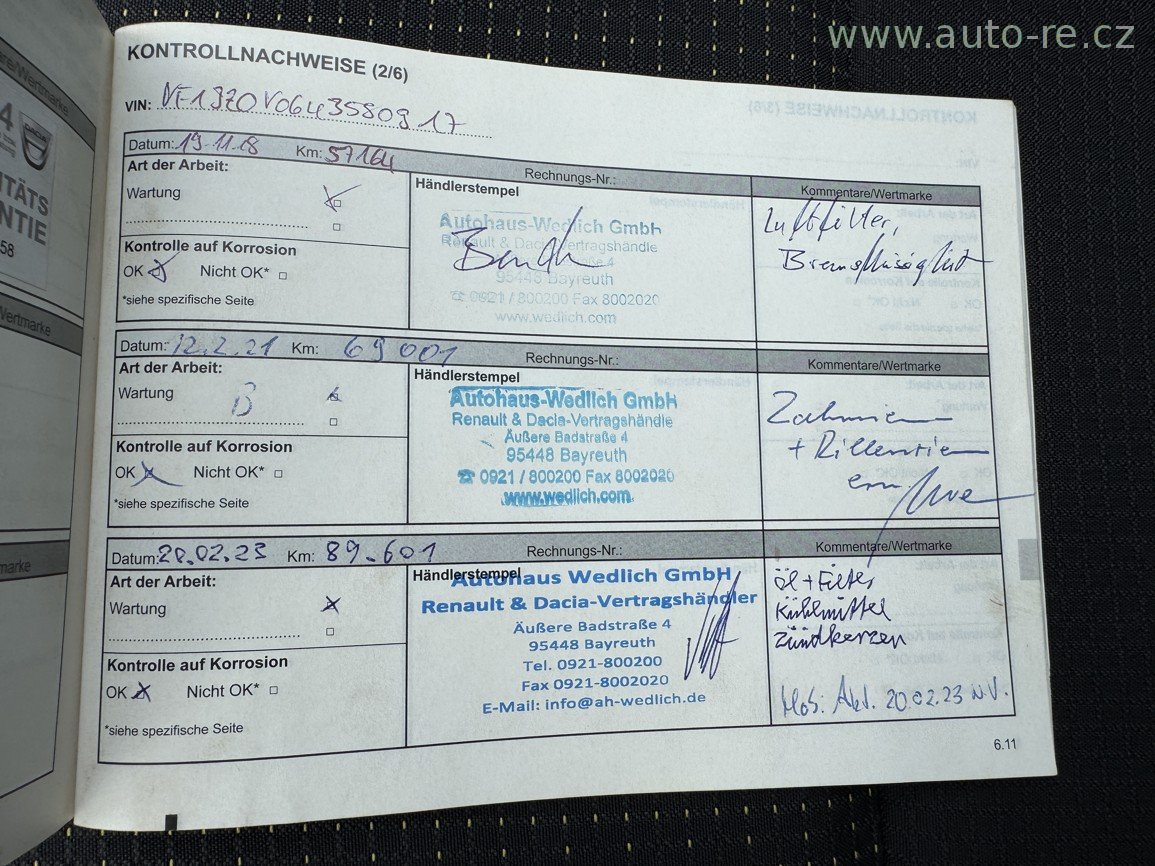 www.auto-re.cz
KONTROLLNACHWEISE (2/6)
VIN: VF1 3Z0V06435809 17
Datum: 19.11.18 Km: 57164 Rechnungs-Nr.:
Art der Arbeit:
Wartung
Kontrolle auf Korrosion
OK Nicht OK*
*siehe spezifische Seite
Händlerstempel
Autohaus-Wedlich GmbH
Renault & Dacia-Vertragshändle
95448 Bayreuth
☎ 0921 / 800200 Fax 8002020
www.wedlich.com
Kommentare/Wertmarke
Luftfilter,
Bremsflüssigkeit
Datum: 12.2.21 Km: 69001 Rechnungs-Nr.:
Art der Arbeit:
Wartung B
Kontrolle auf Korrosion
OK Nicht OK*
*siehe spezifische Seite
Händlerstempel
Autohaus-Wedlich GmbH
Renault & Dacia-Vertragshändle
Äußere Badstraße 4
95448 Bayreuth
☎ 0921 / 800200 Fax 8002020
www.wedlich.com
Kommentare/Wertmarke
Zahnriemen
+ Rillenriemen
Datum: 20.02.23 Km: 89.601 Rechnungs-Nr.:
Art der Arbeit:
Wartung
Kontrolle auf Korrosion
OK Nicht OK*
*siehe spezifische Seite
Händlerstempel
Autohaus Wedlich GmbH
Renault & Dacia-Vertragshändler
Äußere Badstraße 4
95448 Bayreuth
Tel. 0921-800200
Fax 0921-8002020
E-Mail: info@ah-wedlich.de
Kommentare/Wertmarke
Öl + Filter
Kühlmittel
Zündkerzen
Mob: Akt. 20.02.23 N.V.
6.11
4
DACIA
ITÄTS
NTIE
58
Wertmarke